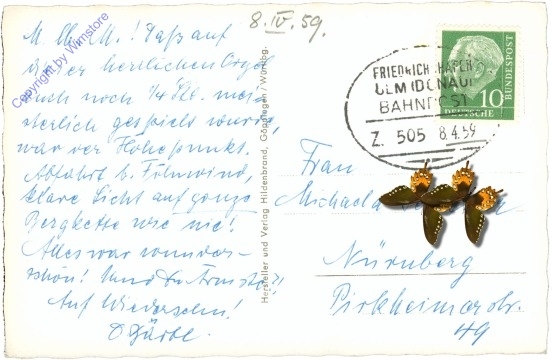 8. IV. 59.
M. lb. M.! Daß auf
Ihrer herrlichen Orgel
auch noch 1/4 Std. mei-
sterlich gespielt wurde,
war der Höhepunkt.
Abfahrt b. Föhnwind,
klare Sicht auf ganze
Bergkette wie nie!
Alles war wunder-
schön!
Auf Wiedersehn!
Hersteller und Verlag Hildenbrand, Göppingen / Württbg.
FRIEDRICHSHAFEN
ULM (DONAU)
BAHNPOST
Z. 505 8.4.59
DEUTSCHE BUNDESPOST
10
Frau
Michaela
Nürnberg
Pirkheimerstr.
49
Copyright by Wimstore